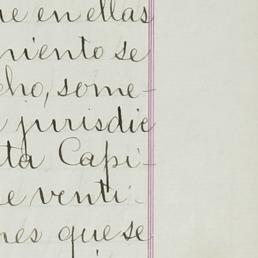 ue en ellas
niento se
cho, some-
a jurisdic
ta Capi-
e venti-
nes que se